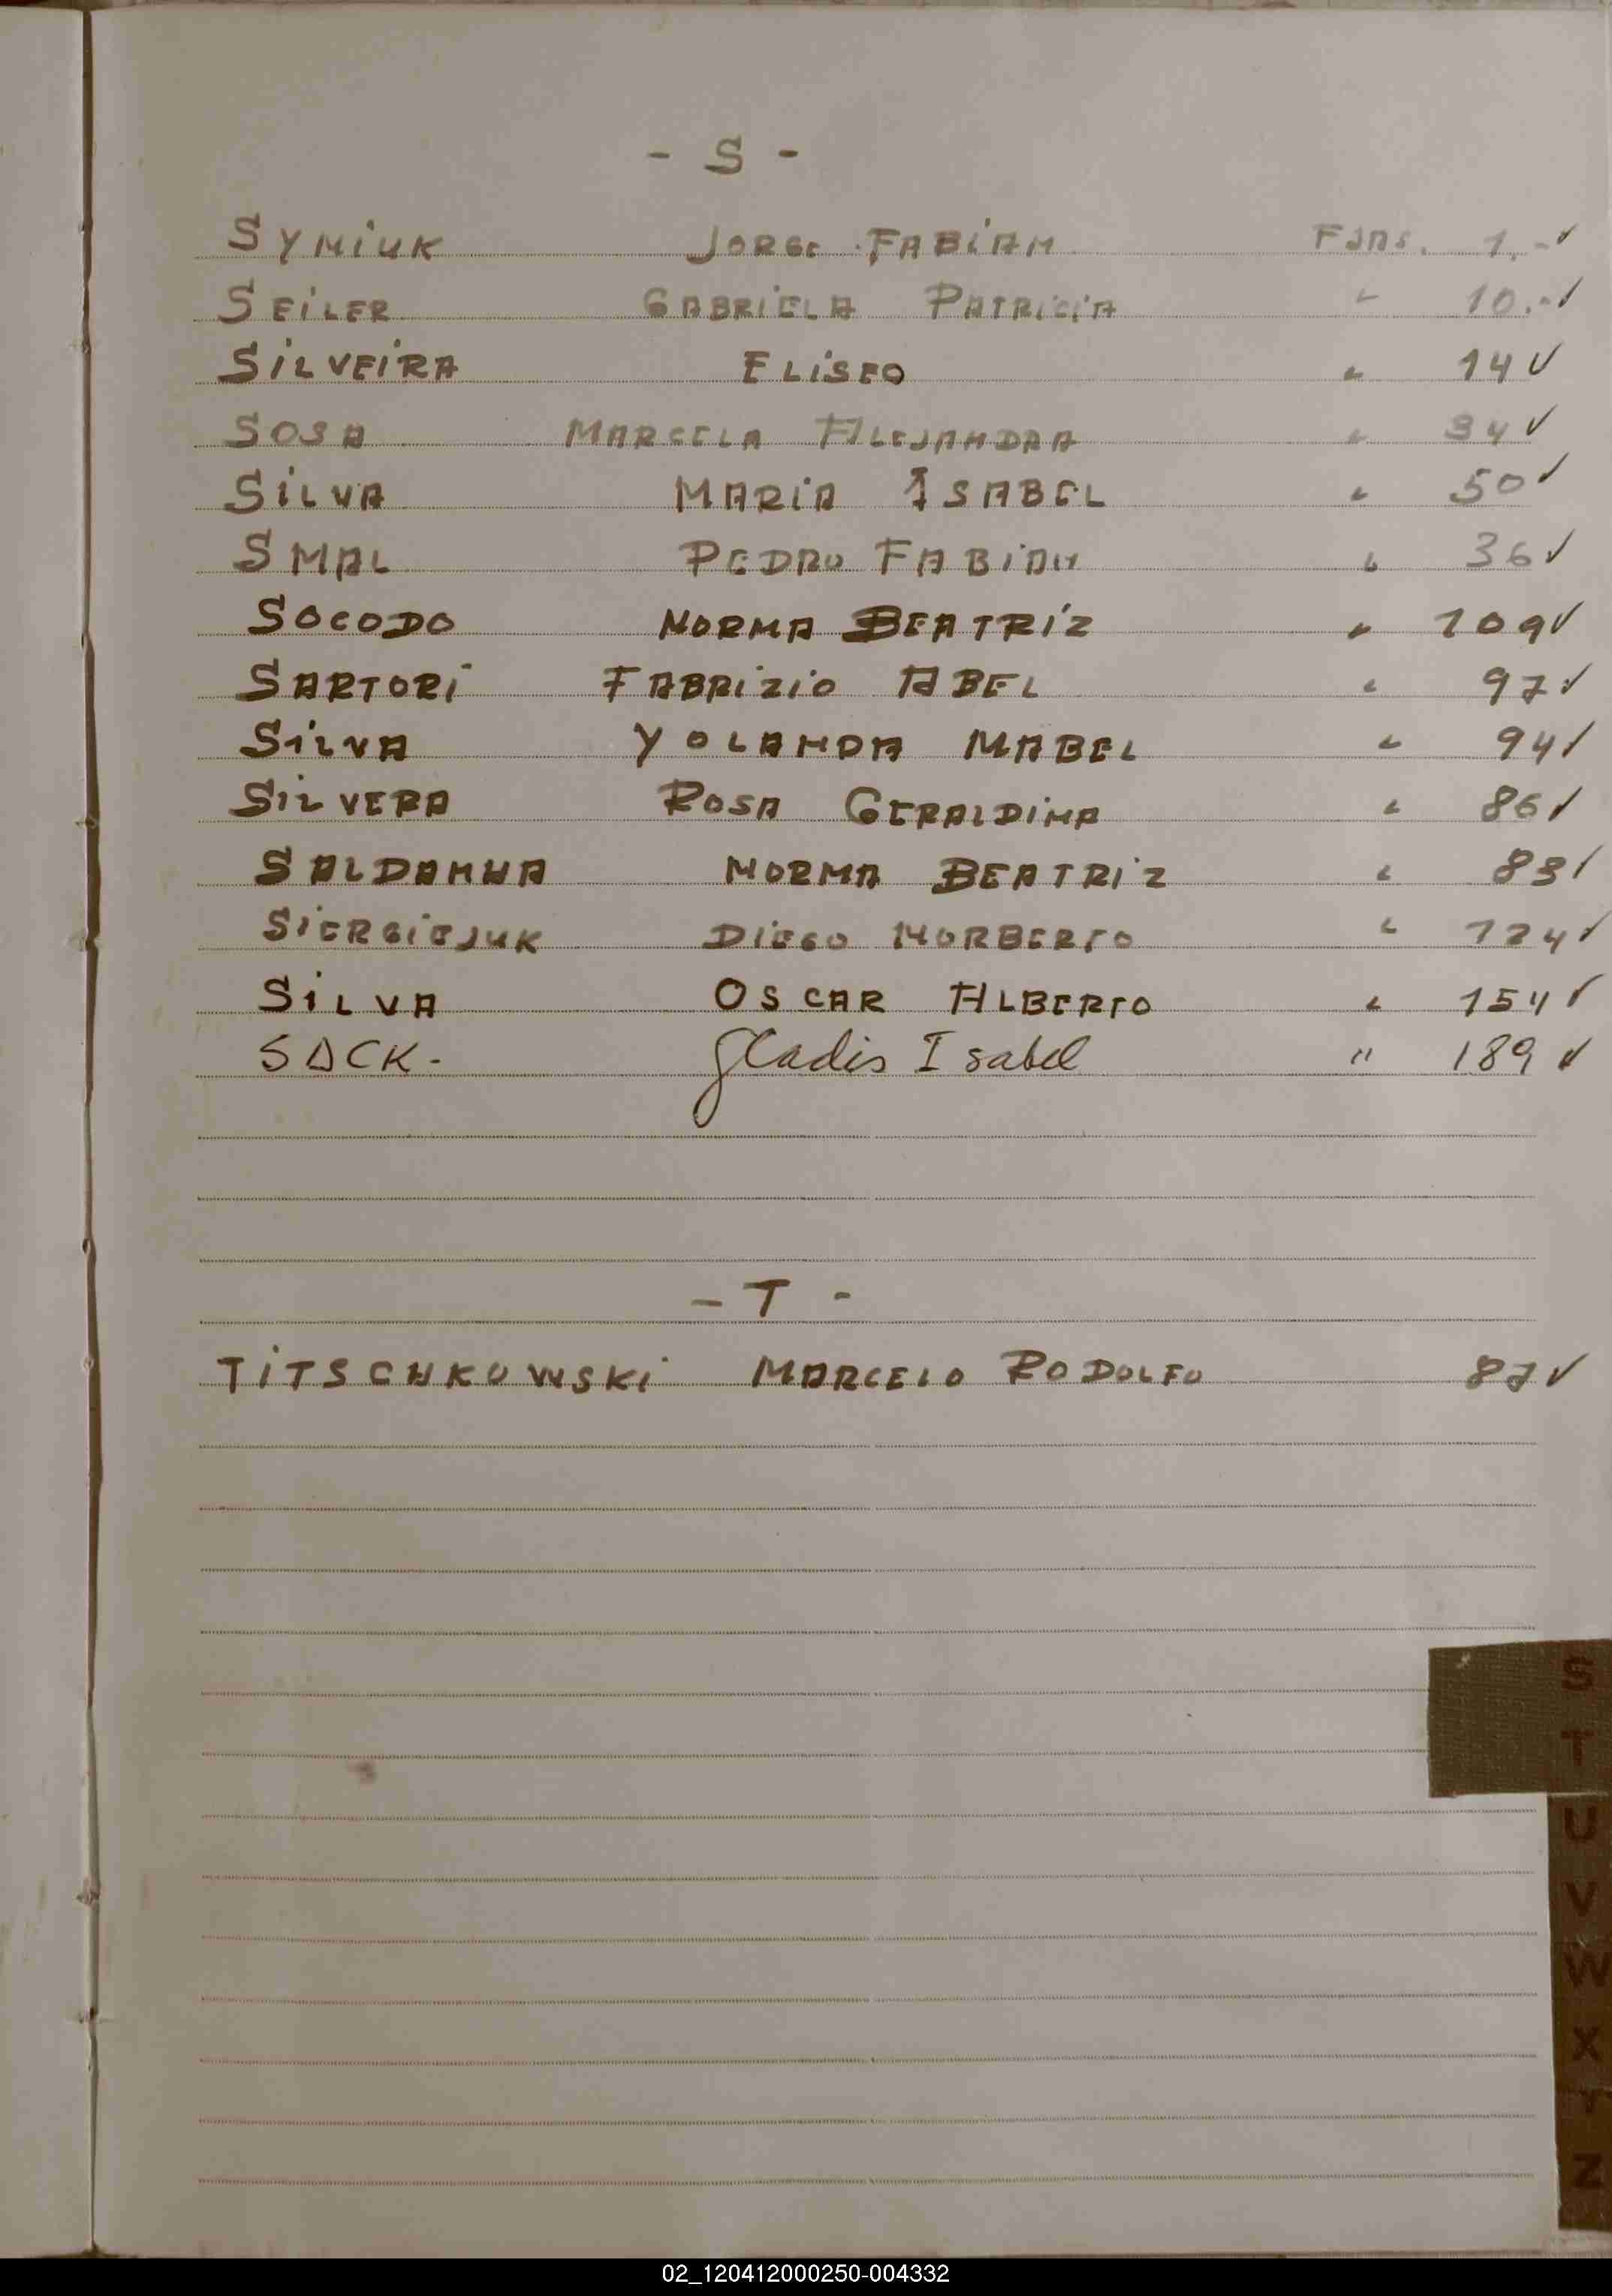 - S -
SYNIUK JORGE FABIAN Fjas. 1.- ✓
SEILER GABRIELA PATRICIA " 10.- ✓
SILVEIRA ELISEO " 14 ✓
SOSA MARCELA ALEJANDRA " 34 ✓
SILVA MARIA ISABEL " 50 ✓
SMAL PEDRO FABIAN " 36 ✓
SOCODO NORMA BEATRIZ " 109 ✓
SARTORI FABRIZIO ABEL " 97 ✓
SILVA YOLANDA MABEL " 94 ✓
SILVERA ROSA GERALDINA " 86 ✓
SALDANHA NORMA BEATRIZ " 83 ✓
SIERGIEJUK DIEGO NORBERTO " 124 ✓
SILVA OSCAR ALBERTO " 154 ✓
SACK.- Gladis Isabel " 189 ✓
- T -
TITSCHKOWSKI MARCELO RODOLFO 87 ✓
S
T
U
V
W
X
Y
Z
02_120412000250-004332